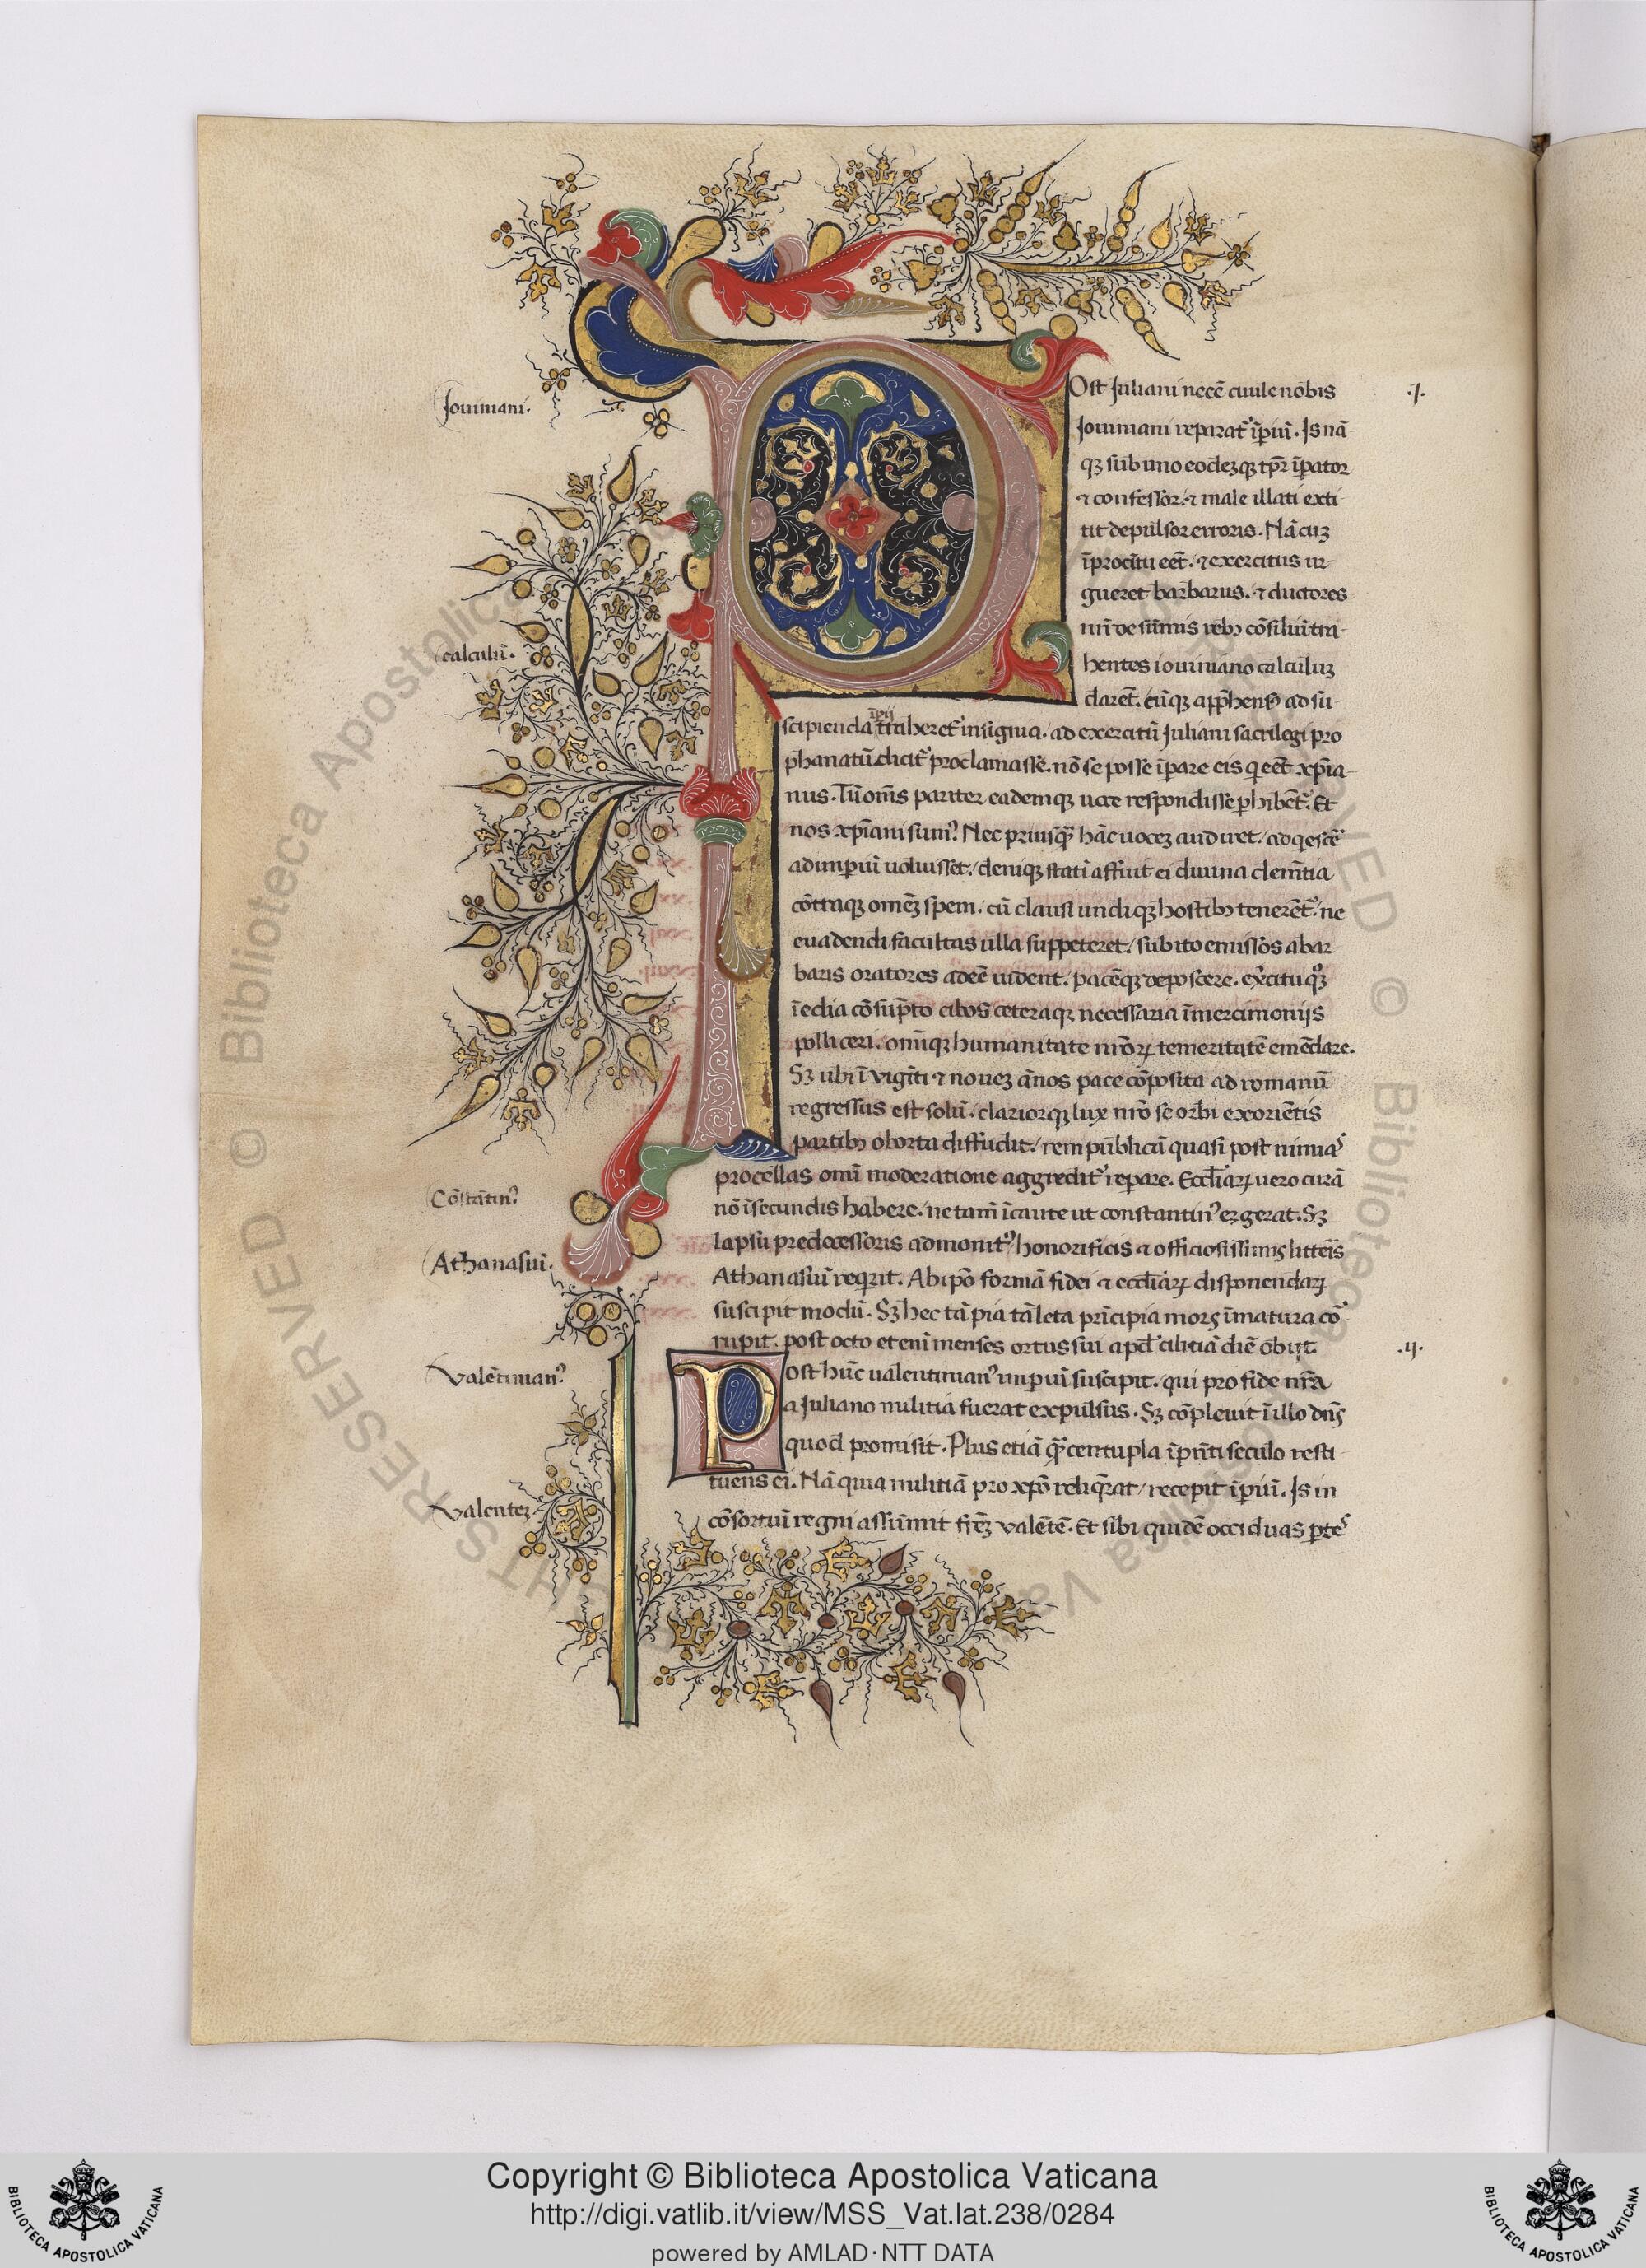 Post Juliani necē ciuile nobis
Jouiniani.
.j.
Jouiniani reparat᷒ īpiū. Is nā
qꝫ sub uno eodeꝫqꝫ tp̄r īpator
⁊ confessor. ⁊ male illati exti
tit depulsor erroris. Nā cuꝫ
ī procītu eēt. ⁊ exercitus ur-
gueret barbarus. ⁊ ductores
nr̄i de sūmis rebꝫ cōsiliū tra-
calculū.
hentes iouiniano calculuꝫ
darēt. eūqꝫ app̄hensū ad su-
īpij
scipienda traheret᷒ insignia. ad exercitū Juliani sacrilegi pro
phanatū. dicit᷒ proclamasse. nō se posse īpare eis q̇ eēt xp̄ia-
nus. Tū om̄s pariter eademqꝫ uoce respondisse phibēt᷒. Et
nos xp̄iani sum᷒. Nec priusqꝫ̄ hāc uoceꝫ audiret. adq̇escē
ad imp̄iū uoluisset. deniqꝫ statī affuit ei diuina clem̄tia
cōtraqꝫ omēꝫ spem. cū clausi undiqꝫ hostibꝫ tenerēt᷒. ne
euadendi facultas ulla suppeteret. subito emissos a bar
baris oratores adeē uident. pacēqꝫ deposcere. ex̄citu qꝫ᷒
īedia cōsūpto cibos ceteraqꝫ necessaria ī mercimonijs
polliceri. omīqꝫ humanitate nr̄oꝝ temeritatē emēdare.
Sꝫ ubi ī viginti ⁊ noueꝫ ānos pace cōposita ad romanū
regressus est solū. clariorqꝫ lux nr̄o se orbi ex oriētis
partibꝫ oborta diffudit. rem publicā quasi post nimia᷒
procellas omī moderatione aggredit᷒ repare. Eccl̄iaꝝ uero curā
Cōstātin᷒
nō ī secundis habere. ne tam̄ īcaute ut constantin᷒ ex gerat. Sꝫ
lapsu predecessoris admonit᷒ honorificis ⁊ officiosissimis litter̄is
Athanasiū.
Athanasiū req̇rit. Ab ip̄o formā fidei ⁊ eccl̄iaꝝ disponendaꝝ
suscipit modū. Sꝫ hec tā pia tā leta prīcipia mors īmatura cō
rupit. post octo etenī menses ortus sui apd᷒ ciliciā diē obijt.
.ij.
Valētinian᷒
Post hūc ualentinian᷒ imp̄iū suscipit. qui pro fide nr̄a
a Juliano militia fuerat expulsus. Sꝫ cōpleuit ī illo dn̄s
quod promisit. Plus etiā qꝫ̄ centupla ī pn̄ti seculo resti-
tuens ei. Nā quia militiā pro xp̄o reliq̄rat / recepit īp̄iū. Is in
Valenteꝫ.
cōsortiū regni assūmit fr̄eꝫ valētē. Et sibi quidē occiduas p̄te᷒
Copyright © Biblioteca Apostolica Vaticana
http://digi.vatlib.it/view/MSS_Vat.lat.238/0284
powered by AMLAD·NTT DATA
BIBLIOTECA APOSTOLICA VATICANA
BIBLIOTECA APOSTOLICA VATICANA